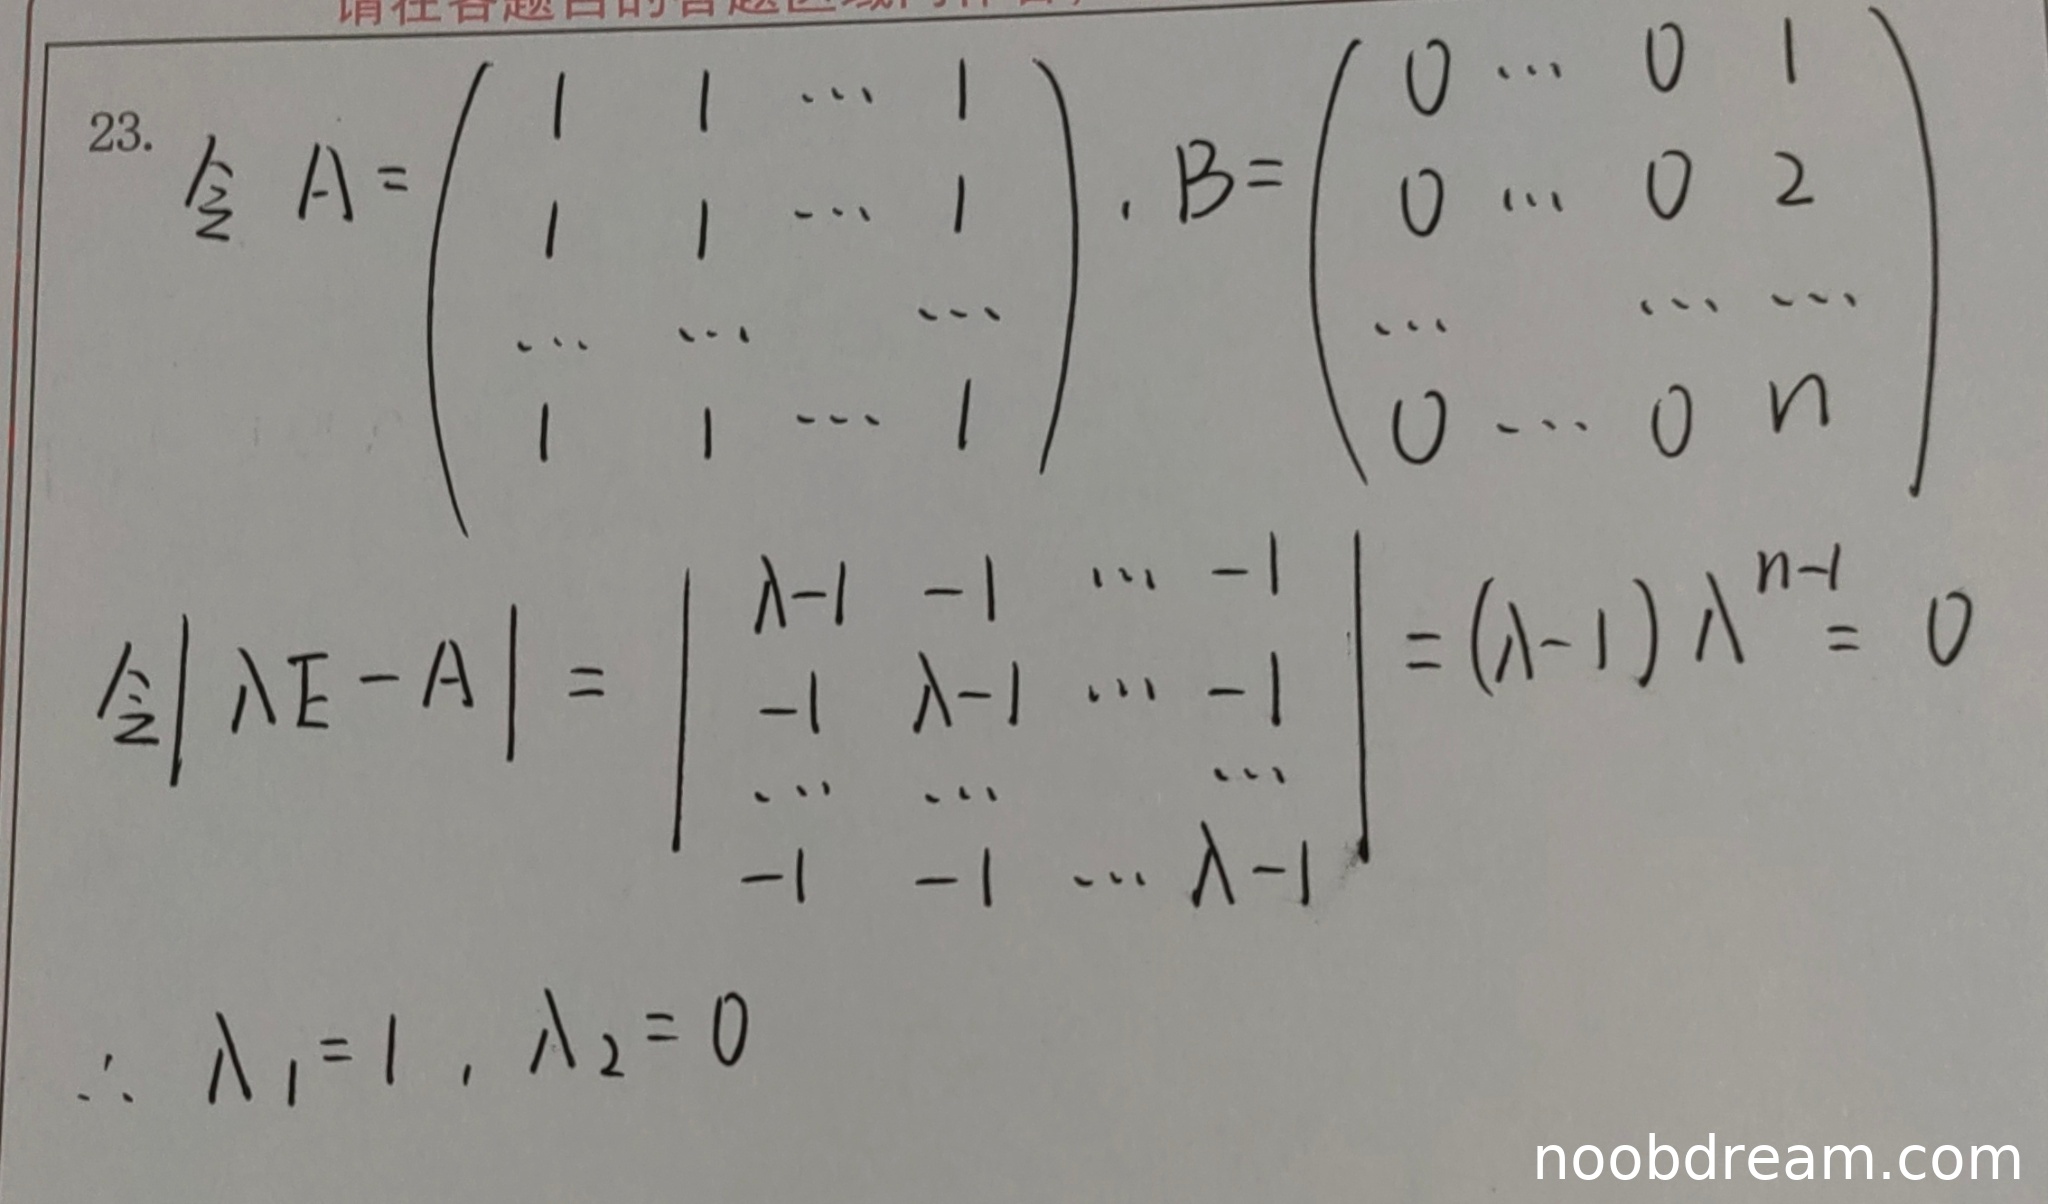 请在各题目的答题区域内作答,
23. 令 A = ( 1 1 ⋯ 1 ) , B = ( 0 ⋯ 0 1 )
( 1 1 ⋯ 1 ) ( 0 ⋯ 0 2 )
( ⋯ ⋯ ⋯ ) ( ⋯ ⋯ ⋯ )
( 1 1 ⋯ 1 ) ( 0 ⋯ 0 n )
令 |λE-A| = | λ-1 -1 ⋯ -1 | = (λ-1) λ^{n-1} = 0
| -1 λ-1 ⋯ -1 |
| ⋯ ⋯ ⋯ |
| -1 -1 ⋯ λ-1 |
∴ λ₁=1 , λ₂=0
noobdream.com